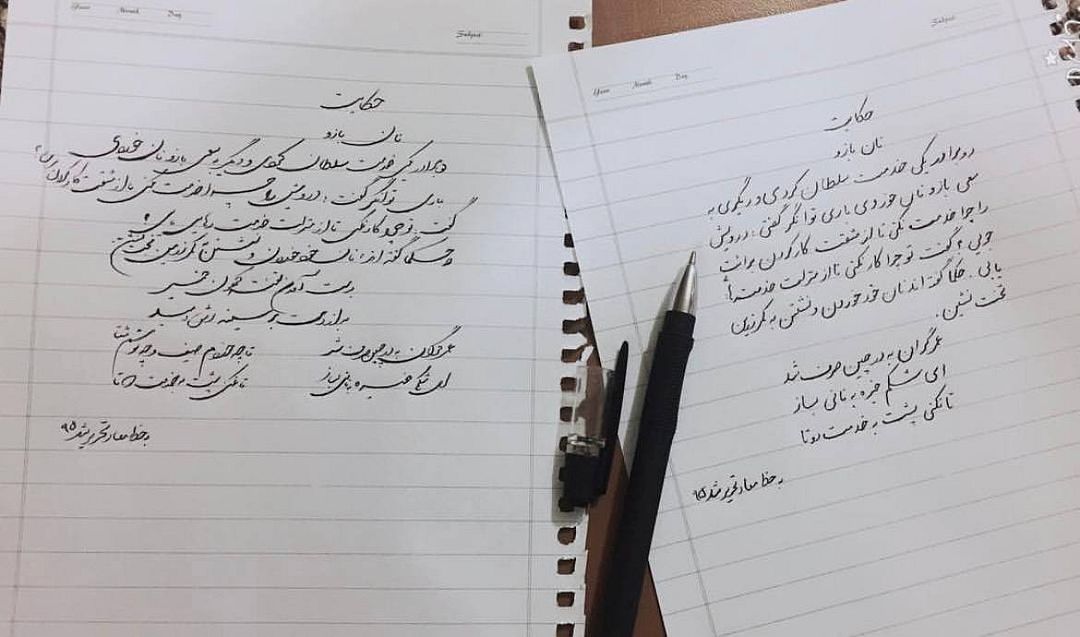 Year Month Day
Subject
حکایت
نان بازو
دو برادر یکی خدمت سلطان کردی و دیگر به سعی بازو نان خوردی
باری توانگر گفت: درویش را چرا خدمت نکنی تا از مشقت کار کردن
گفت: تو چرا کار نکنی تا از مذلت خدمت رهایی
حکما گفته اند: نان خود خوردن و نشستن به کمر زرین
بدست آهن تفته کردن خمیر
به از دست بر سینه
عمر گران به در چین صرف شد تا چه خورم صیف و چه پوشم شتا
ای شکم خیره به نانی بساز تا نکنی پشت به خدمت دوتا
به خط معاد تحریر شد ۹۵
Year Month Day
Subject
حکایت
نان بازو
دو برادر یکی خدمت سلطان کردی و دیگری به
سعی بازو نان خوردی باری توانگر گفتی: درویش
را چرا خدمت نکنی تا از مشقت کار کردن برائت
جویی؟ گفت تو چرا کار نکنی تا از مذلت خدمت
یابی. حکما گفته اند نان خود خوردن و نشستن به کمر زرین
تخت نشین.
عمر گران به در چین صرف شد
ای شکم خیره به نانی بساز
تا نکنی پشت به خدمت دوتا
به خط معاد تحریر شد ۹۵